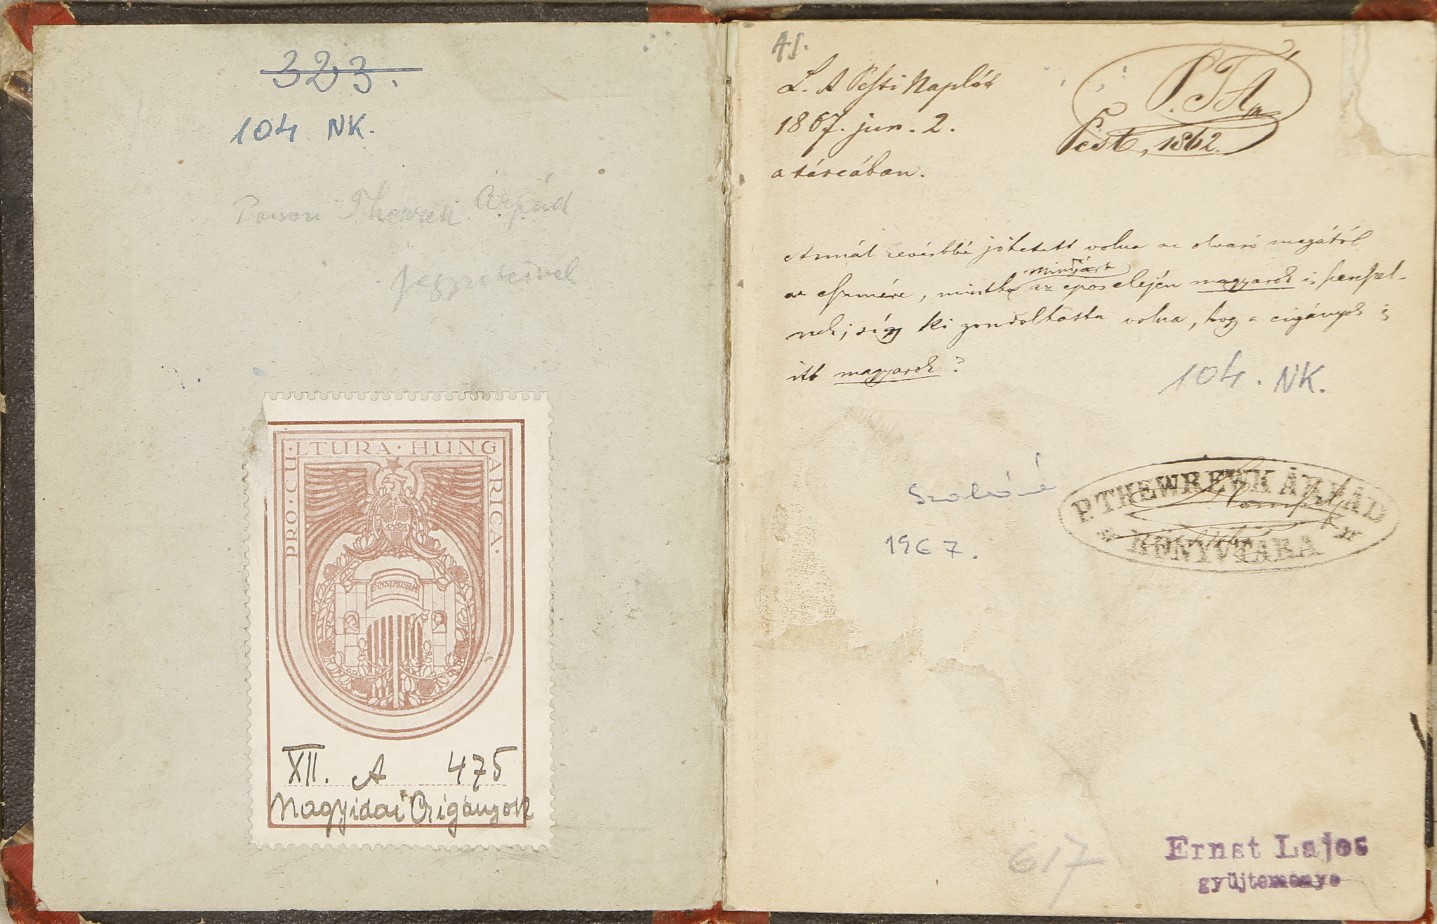 323.
104 NK.
Ponori Thewrewk Árpád
jegyzeteivel
PRO·CULTURA·HUNGARICA·
XII. A 475
Nagyidai Czigányok
L. A Pesti Naplót
1867. jun. 2.
a tárcában.
P. T. Á
Pest, 1862.
Annál kevésbbé jöhetett volna az olvasó magától
az eszmére, mintha mingyárt az epos elején magyarok is szerepel-
nek; úgy ki gondolhatta volna, hogy a cigányok is
itt magyarok?
104. NK.
1967.
P. THEWREWK ÁRPÁD
KÖNYVTÁRA
617
Ernst Lajos
gyűjteménye